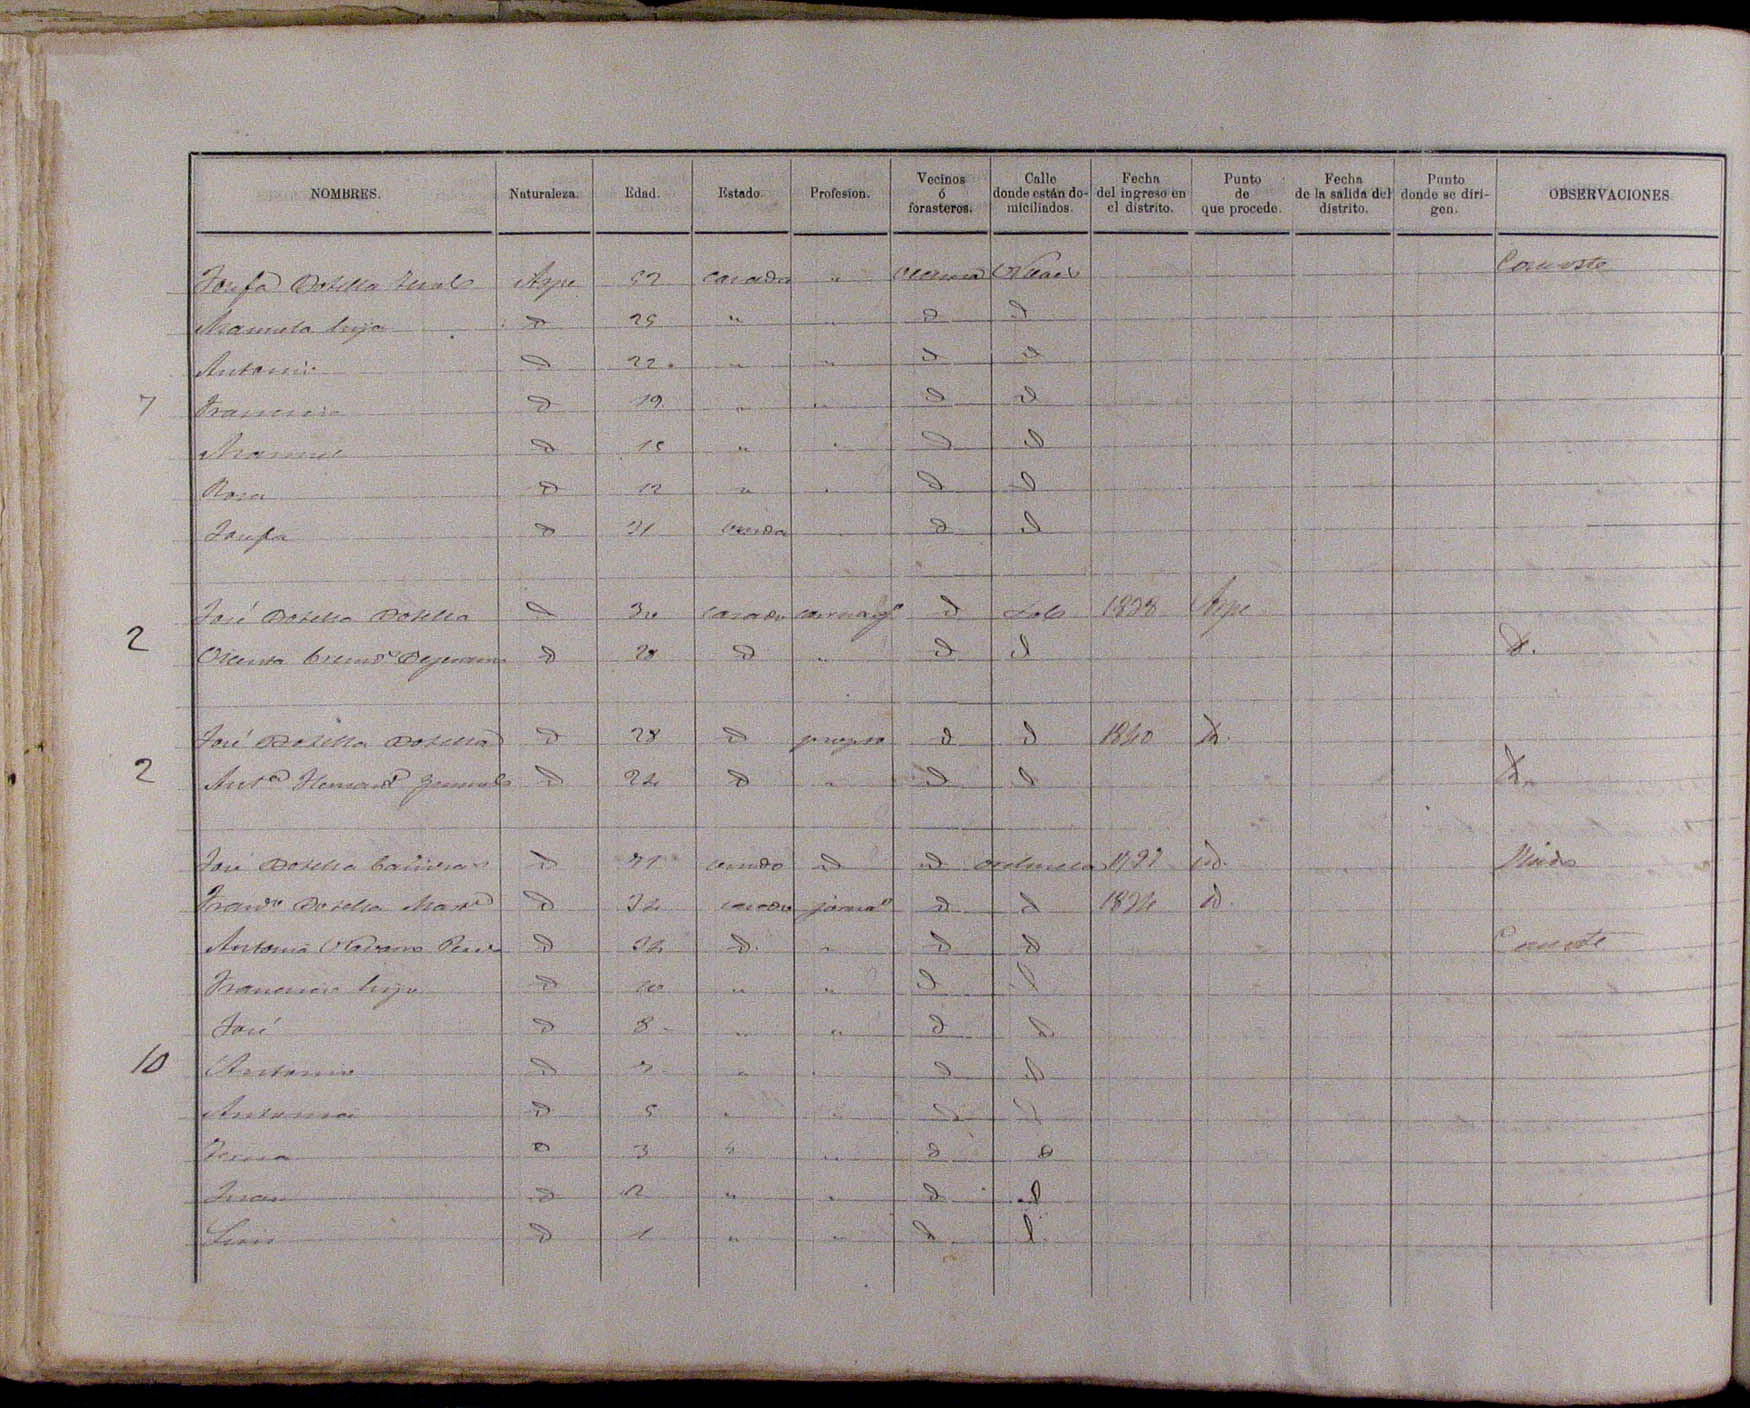 NOMBRES. Naturaleza. Edad. Estado. Profesion. Vecinos ó forasteros. Calle donde están domiciliados. Fecha del ingreso en el distrito. Punto de que procede. Fecha de la salida del distrito. Punto donde se dirigen. OBSERVACIONES
Josefa Botella Aspe 52 casada " vecina Consorte
Manuela hija d 25 " " d d
Antonio d 22 " " d d
7 Francisco d 19 " " d d
Manuel d 15 " " d d
Rosa d 12 " " d d
Josefa d 21 d d
José Botella Botella d 30 casado d Sol 1828 Aspe
2 Vicenta d 28 d " d d d.
José Botella Botella d 28 d d d 1840 d.
2 Antª Hernandª d 24 d " d d d.
José Botella d 71 viudo d d d. Viudo
Francº Botella d 34 casado jornalº d d 1824 d.
Antonia Navarro d 34 d. " d d Consorte
Francisco hijo d 10 " " d d
José d 8 " " d d
10 Antonio d 7 " " d d
Antonia d 5 " " d d
d 3 " " d d
Juan d 2 " " d d
Luis d 1 " " d d.